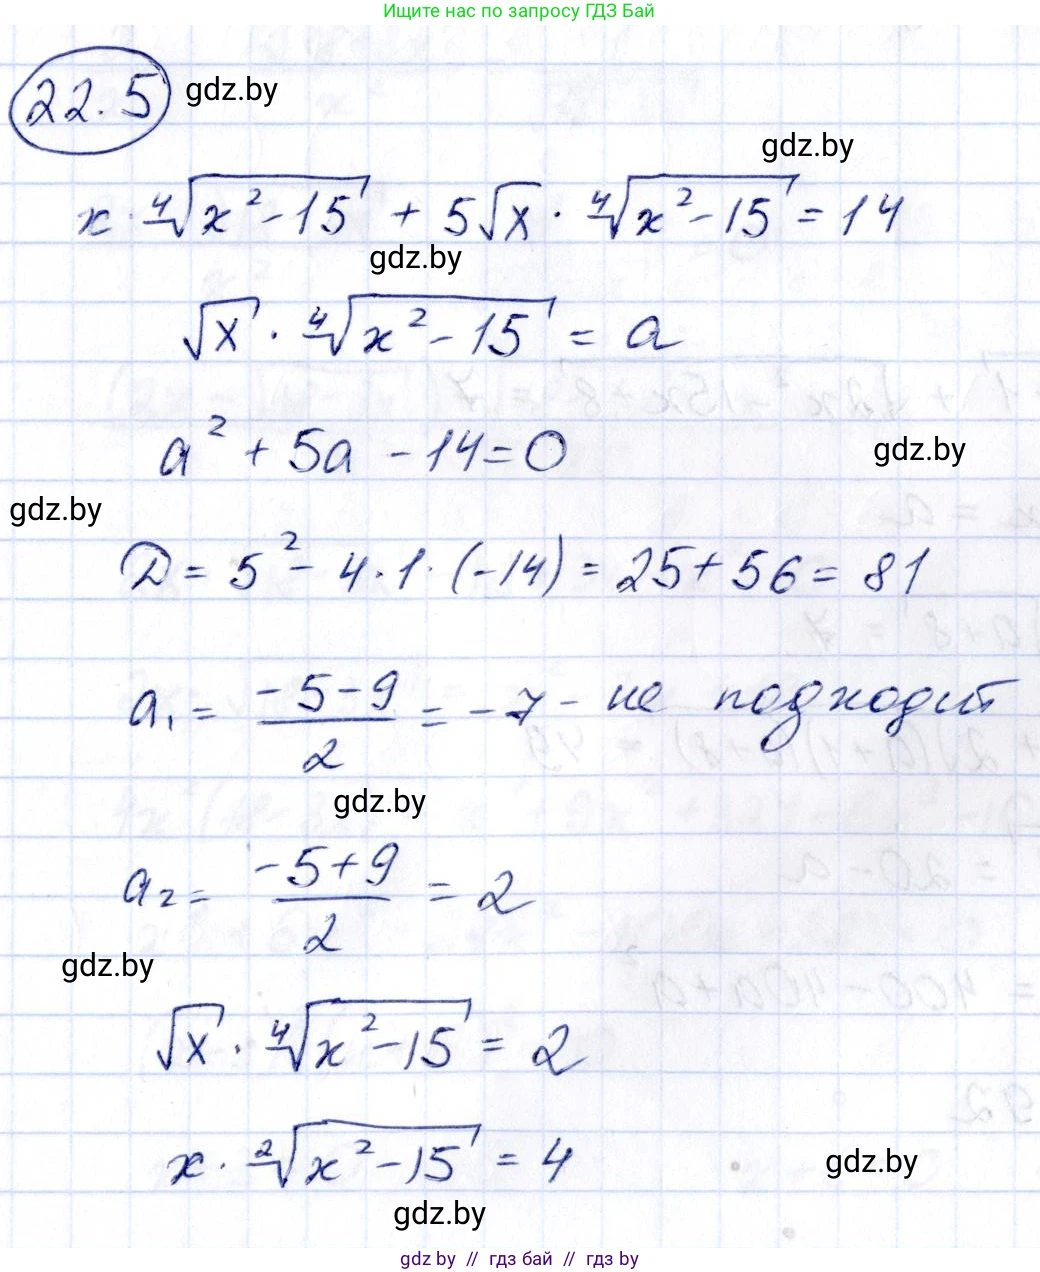 Ищите нас по запросу ГДЗ Бай
22.5 gdz.by
gdz.by
x · ⁴√(x² - 15) + 5√x · ⁴√(x² - 15) = 14
gdz.by
√x · ⁴√(x² - 15) = a
a² + 5a - 14 = 0 gdz.by
gdz.by
D = 5² - 4 · 1 · (-14) = 25 + 56 = 81
a₁ = (-5-9)/2 = -7 - не подходит
gdz.by
a₂ = (-5+9)/2 = 2
gdz.by
√x · ⁴√(x² - 15) = 2
x · ²√(x² - 15) = 4
gdz.by
gdz.by
gdz by // гдз бай // гдз by